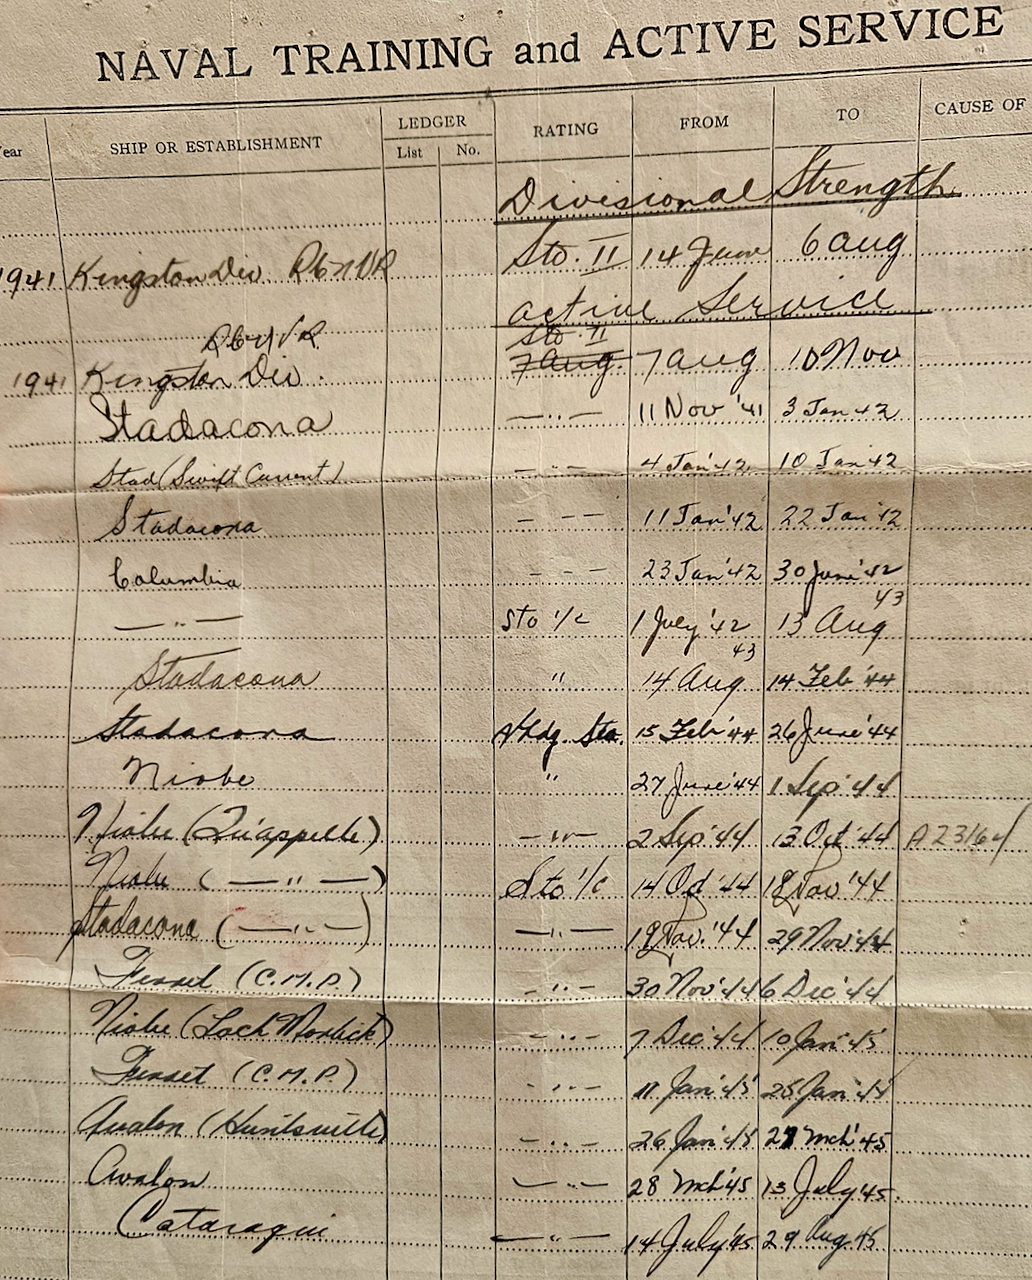 NAVAL TRAINING and ACTIVE SERVICE
ear SHIP OR ESTABLISHMENT LEDGER List No. RATING FROM TO CAUSE OF
Divisional Strength
1941 Kingston Div. RCNVR Sto. II 14 June 6 aug
active Service
RCNVR Sto. II
1941 Kingston Div. 7 aug. 7 aug 10 Nov
Stadacona —..— 11 Nov '41 3 Jan 42
Stad (Swift Current) - .. - 4 Jan '42 10 Jan 42
Stadacona - - - 11 Jan '42 22 Jan '42
Columbia - - - 23 Jan '42 30 June '42
— " — Sto 1/c 1 July '42 13 Aug 43
Stadacona " 14 Aug 43 14 Feb '44
Stadacona Sto. 15 Feb '44 26 June '44
Niobe " 27 June '44 1 Sep '44
Niobe (Qu'appelle) — " — 2 Sep '44 13 Oct '44 A 23164
Niobe ( — " — ) Sto 1/c 14 Oct '44 18 Nov '44
Stadacona ( — .. — ) — .. — 19 Nov. '44 29 Nov '44
(C.M.P.) - .. - 30 Nov '44 6 Dec '44
Niobe (Loch Morlich) - .. - 7 Dec '44 10 Jan '45
(C.M.P.) - .. - 11 Jan '45 25 Jan '45
Avalon (Huntsville) - .. - 26 Jan '45 27 Mch '45
Avalon — .. — 28 Mch '45 13 July 45.
Cataraqui — " — 14 July '45 29 Aug. 45